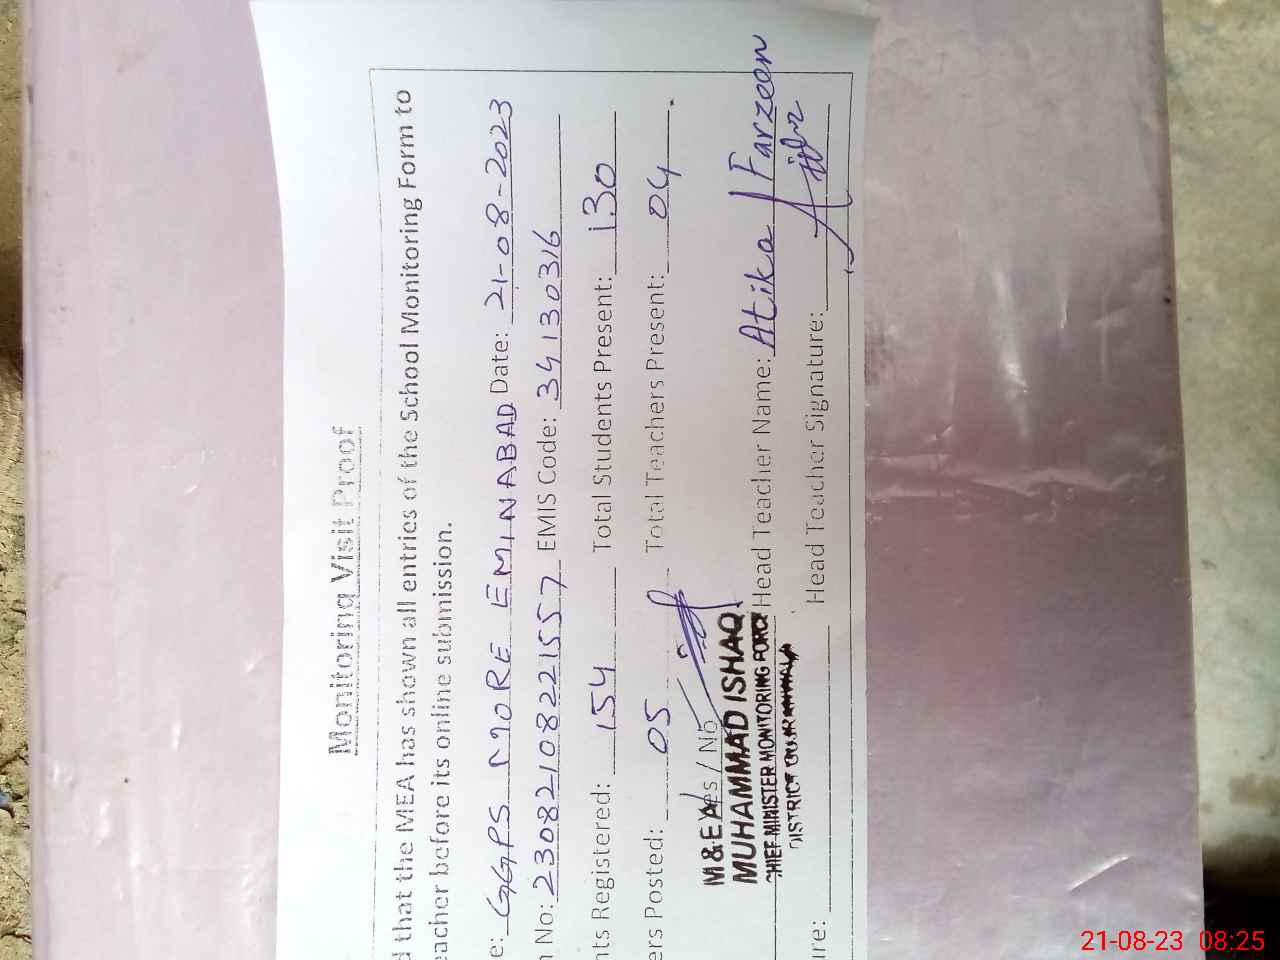 Monitoring Visit Proof
d that the MEA has shown all entries of the School Monitoring Form to
eacher before its online submission.
e: GGPS MORE EMINABAD Date: 21-08-2023
n No: 23082108221557 EMIS Code: 34130316
nts Registered: 154 Total Students Present: 130
ers Posted: 05 Total Teachers Present: 04
M & EA Yes / No
MUHAMMAD ISHAQ
CHIEF MINISTER MONITORING FORCE Head Teacher Name: Atika Farzeen
DISTRICT GUJRANWALA
ure: Head Teacher Signature:
21-08-23 08:25